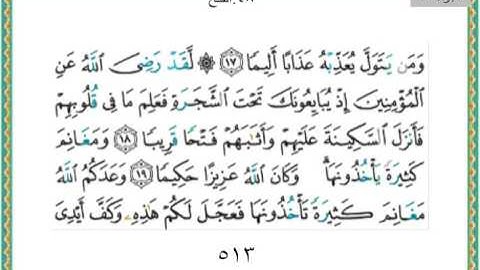 وَمَن يَتَوَلَّ يُعَذِّبْهُ عَذَابًا أَلِيمًا ١٧ ۞ لَّقَدْ رَضِىَ ٱللَّهُ عَنِ
ٱلْمُؤْمِنِينَ إِذْ يُبَايِعُونَكَ تَحْتَ ٱلشَّجَرَةِ فَعَلِمَ مَا فِى قُلُوبِهِمْ
فَأَنزَلَ ٱلسَّكِينَةَ عَلَيْهِمْ وَأَثَٰبَهُمْ فَتْحًا قَرِيبًا ١٨ وَمَغَانِمَ
كَثِيرَةً يَأْخُذُونَهَا ۗ وَكَانَ ٱللَّهُ عَزِيزًا حَكِيمًا ١٩ وَعَدَكُمُ ٱللَّهُ
مَغَانِمَ كَثِيرَةً تَأْخُذُونَهَا فَعَجَّلَ لَكُمْ هَٰذِهِۦ وَكَفَّ أَيْدِىَ
٥١٣